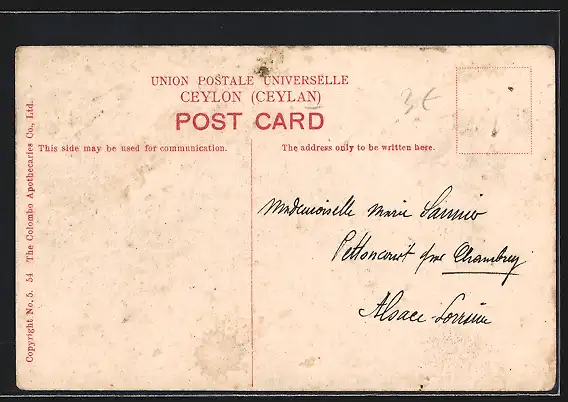 UNION POSTALE UNIVERSELLE
CEYLON (CEYLAN)
POST CARD
3 €
This side may be used for communication.
The address only to be written here.
Copyright No. 5. 54 The Colombo Apothecaries Co., Ltd.
Mademoiselle Marie
Pettoncourt par Chambrey
Alsace-Lorraine